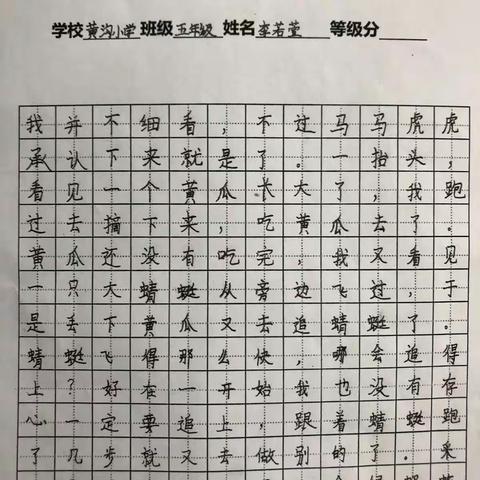 学校黄沟小学班级五年级 姓名李若萱 等级分
我并不细看，不过马马虎虎
承认下来就是了。一抬头，
看见一个黄瓜长大了，我跑
过去摘下来，吃黄瓜去了。
黄瓜还没有吃完，我又看见
一只大蜻蜓从旁边飞过，于
是丢下黄瓜又去追蜻蜓了。
蜻蜓飞得那么快，哪会追得
上？好在一开始我也没有存
心一定要追上，跟着蜻蜓跑
了几步就又去做别的了。采